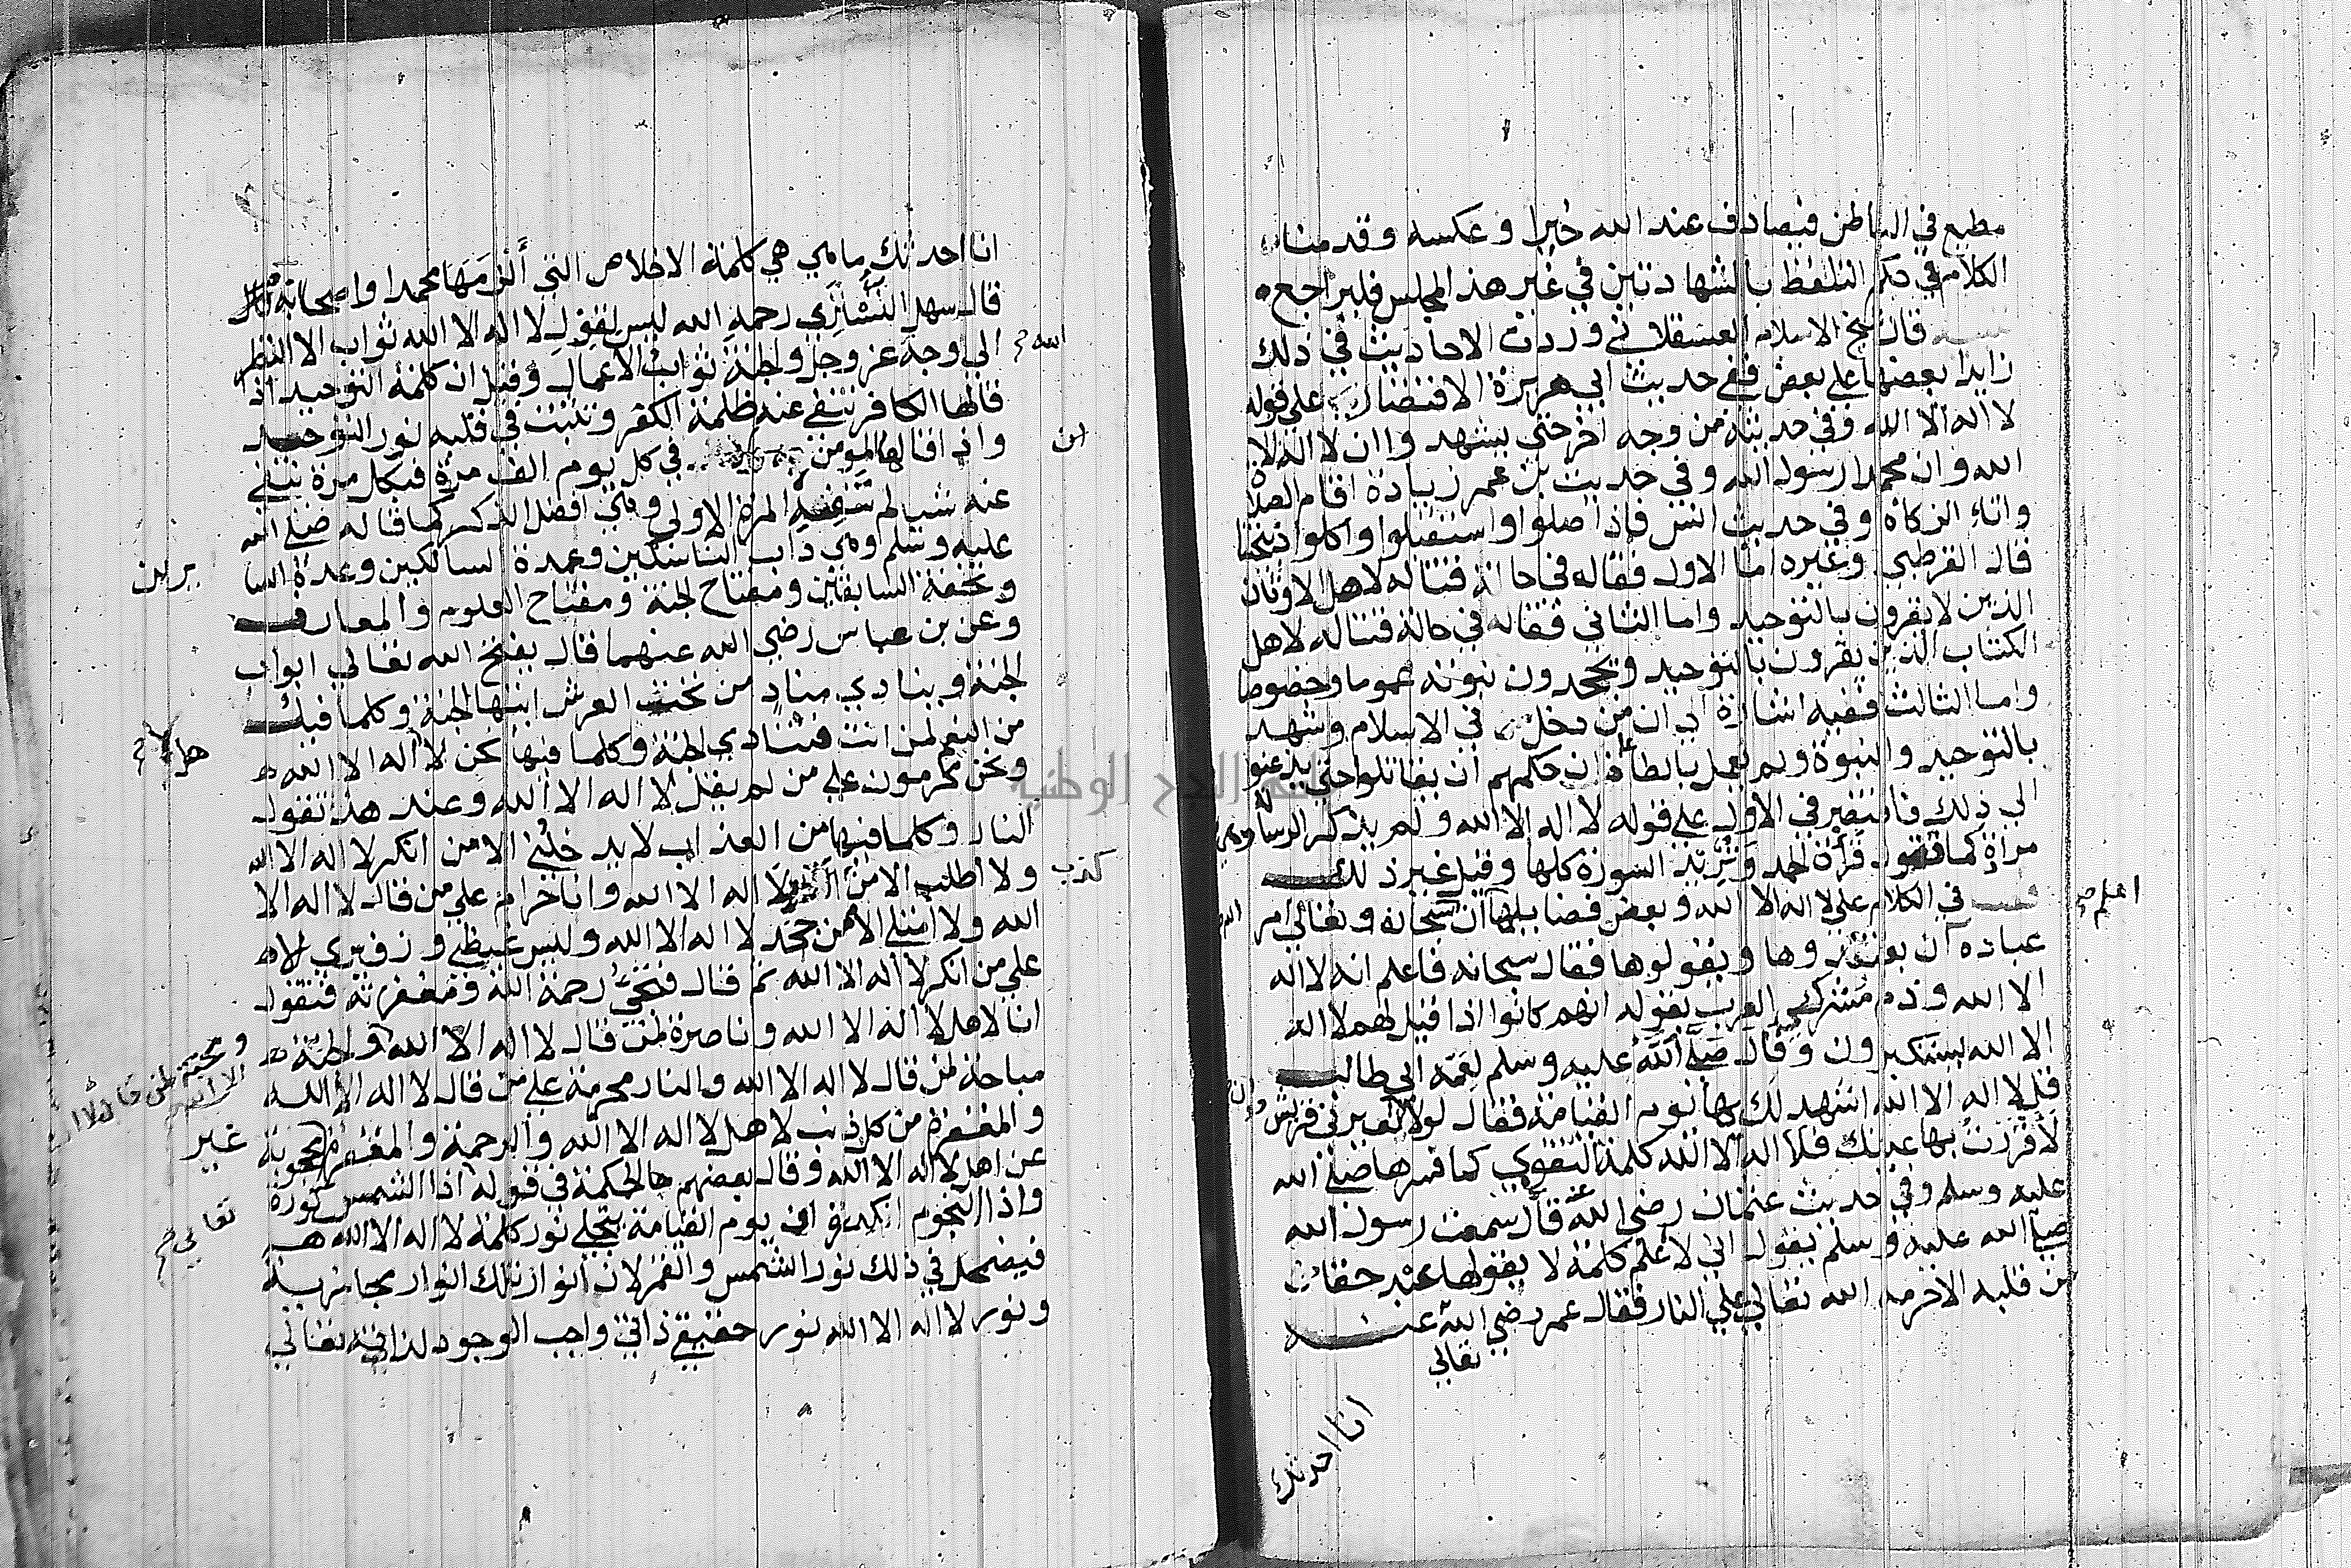 مطيع في الباطن فيصادف عند الله خيرا وعكسه وقدمنا
الكلام في حكم التلفظ بالشهادتين في غير هذا المجلس فليراجع
قال شيخ الاسلام العسقلاني وردت الاحاديث في ذلك
زايدا بعضها علي بعض ففي حديث ابي هريرة الاقتصار علي قوله
لا اله الا الله وفي حديثه من وجه اخر حتي يشهدوا ان لا اله الا
الله وان محمدا رسول الله وفي حديث بن عمر زيادة اقام الصلاة
وايتاء الزكاة وفي حديث انس فاذا صلوا واستقبلوا واكلوا ذبيحتنا
قال القرطبي وغيره اما الاول فقاله في حالة قتاله لاهل الاوثان
الذين لا يقرون بالتوحيد واما الثاني فقاله في حالة قتاله لاهل
الكتاب الذين يقرون بالتوحيد ويجحدون نبوته عموما وخصوصا
واما الثالث ففيه اشارة ان من دخل في الاسلام وشهد
بالتوحيد والنبوة ولم يعمل بالطاعة ان حكمهم ان يقاتلوا حتي يذعنوا
الي ذلك فاقتصر في الاول علي قوله لا اله الا الله ولم يذكر الرسالة وهي
مراة كما تقول قرات الحمد وتريد السورة كلها وقيل غير ذلك
في الكلام علي لا اله الا الله وبعض فضايلها ان سبحانه وتعالي امر
اعلم صح
الله
عباده ان يعتقدوها ويقولوها فقال سبحانه فاعلم انه لا اله
الا الله وذم مشركي العرب بقوله انهم كانوا اذا قيل لهم لا اله
الا الله يستكبرون وقال صلي الله عليه وسلم لعمه ابي طالب
قل لا اله الا الله اشهد لك بها يوم القيامة فقال لولا تعيرني قريش
لاقررت بها عينك فلا اله الا الله كلمة التقوي كما فسرها صلي الله
عليه وسلم وفي حديث عثمان رضي الله عنه قال سمعت رسول الله
صلي الله عليه وسلم يقول اني لاعلم كلمة لا يقولها عبد حقا
من قلبه الا حرمه الله تعالي علي النار فقال عمر رضي الله عنه
تعالي
انا احدثك
انا احدثك ما هي هي كلمة الاخلاص التي ألزمها محمدا واصحابه
قال سهل التستري رحمه الله ليس لقول لا اله الا الله ثواب الا النظر
الي وجه عز وجل والجنة ثواب الاعمال وقيل ان كلمة التوحيد اذ
الله صح
قالها الكافر تنفي عنه ظلمة الكفر وتثبت في قلبه نور التوحيد
واذا قالها المومن في كل يوم الف مرة فبكل مرة تنفي
عنه شيا لم تنفه المرة الاولي وهي افضل الذكر كما قاله صلي الله
عليه وسلم وهي داب الناسكين وعمدة السالكين وعدة السا
يرين
وتحفة السابقين ومفتاح الجنة ومفتاح العلوم والمعارف
وعن بن عباس رضي الله عنهما قال يفتح الله تعالي ابواب
الجنة وينادي مناد من تحت العرش ايتها الجنة وكلما فيك
من النعم لمن انت فتنادي الجنة وكلما فيها نحن لا اله الا الله
ونحن محرمون علي من لم يقل لا اله الا الله وعند هذا تقول
النار وكلما فيها من العذاب لا يدخلني الا من انكر لا اله الا الله
ولا اطلب الا من لا اله الا الله وانا حرام علي من قال لا اله الا
كذب
الله ولا امتلي الا ممن جحد لا اله الا الله وليس غيظي وزفيري الا
علي من انكر لا اله الا الله ثم قال فتجي رحمة الله ومغفرته فتقول
انا لاهل لا اله الا الله وناصرة لمن قال لا اله الا الله والجنة
مباحة لمن قال لا اله الا الله والنار محرمة علي من قال لا اله الا الله
والمغفرة من كل ذنب لاهل لا اله الا الله والرحمة والمغفرة محجوبة
غير
عن اهل لا اله الا الله وقال بعضهم ما الحكمة في قوله اذا الشمس كورة
تعالي صح
واذا النجوم انكدرة ان يوم القيامة يتجلي نور كلمة لا اله الا الله
فيضمحل في ذلك نور الشمس والقمر لان انوار تلك انوار مجازية
ونور لا اله الا الله نور حقيقي ذاتي واجب الوجود لذاته تعالي